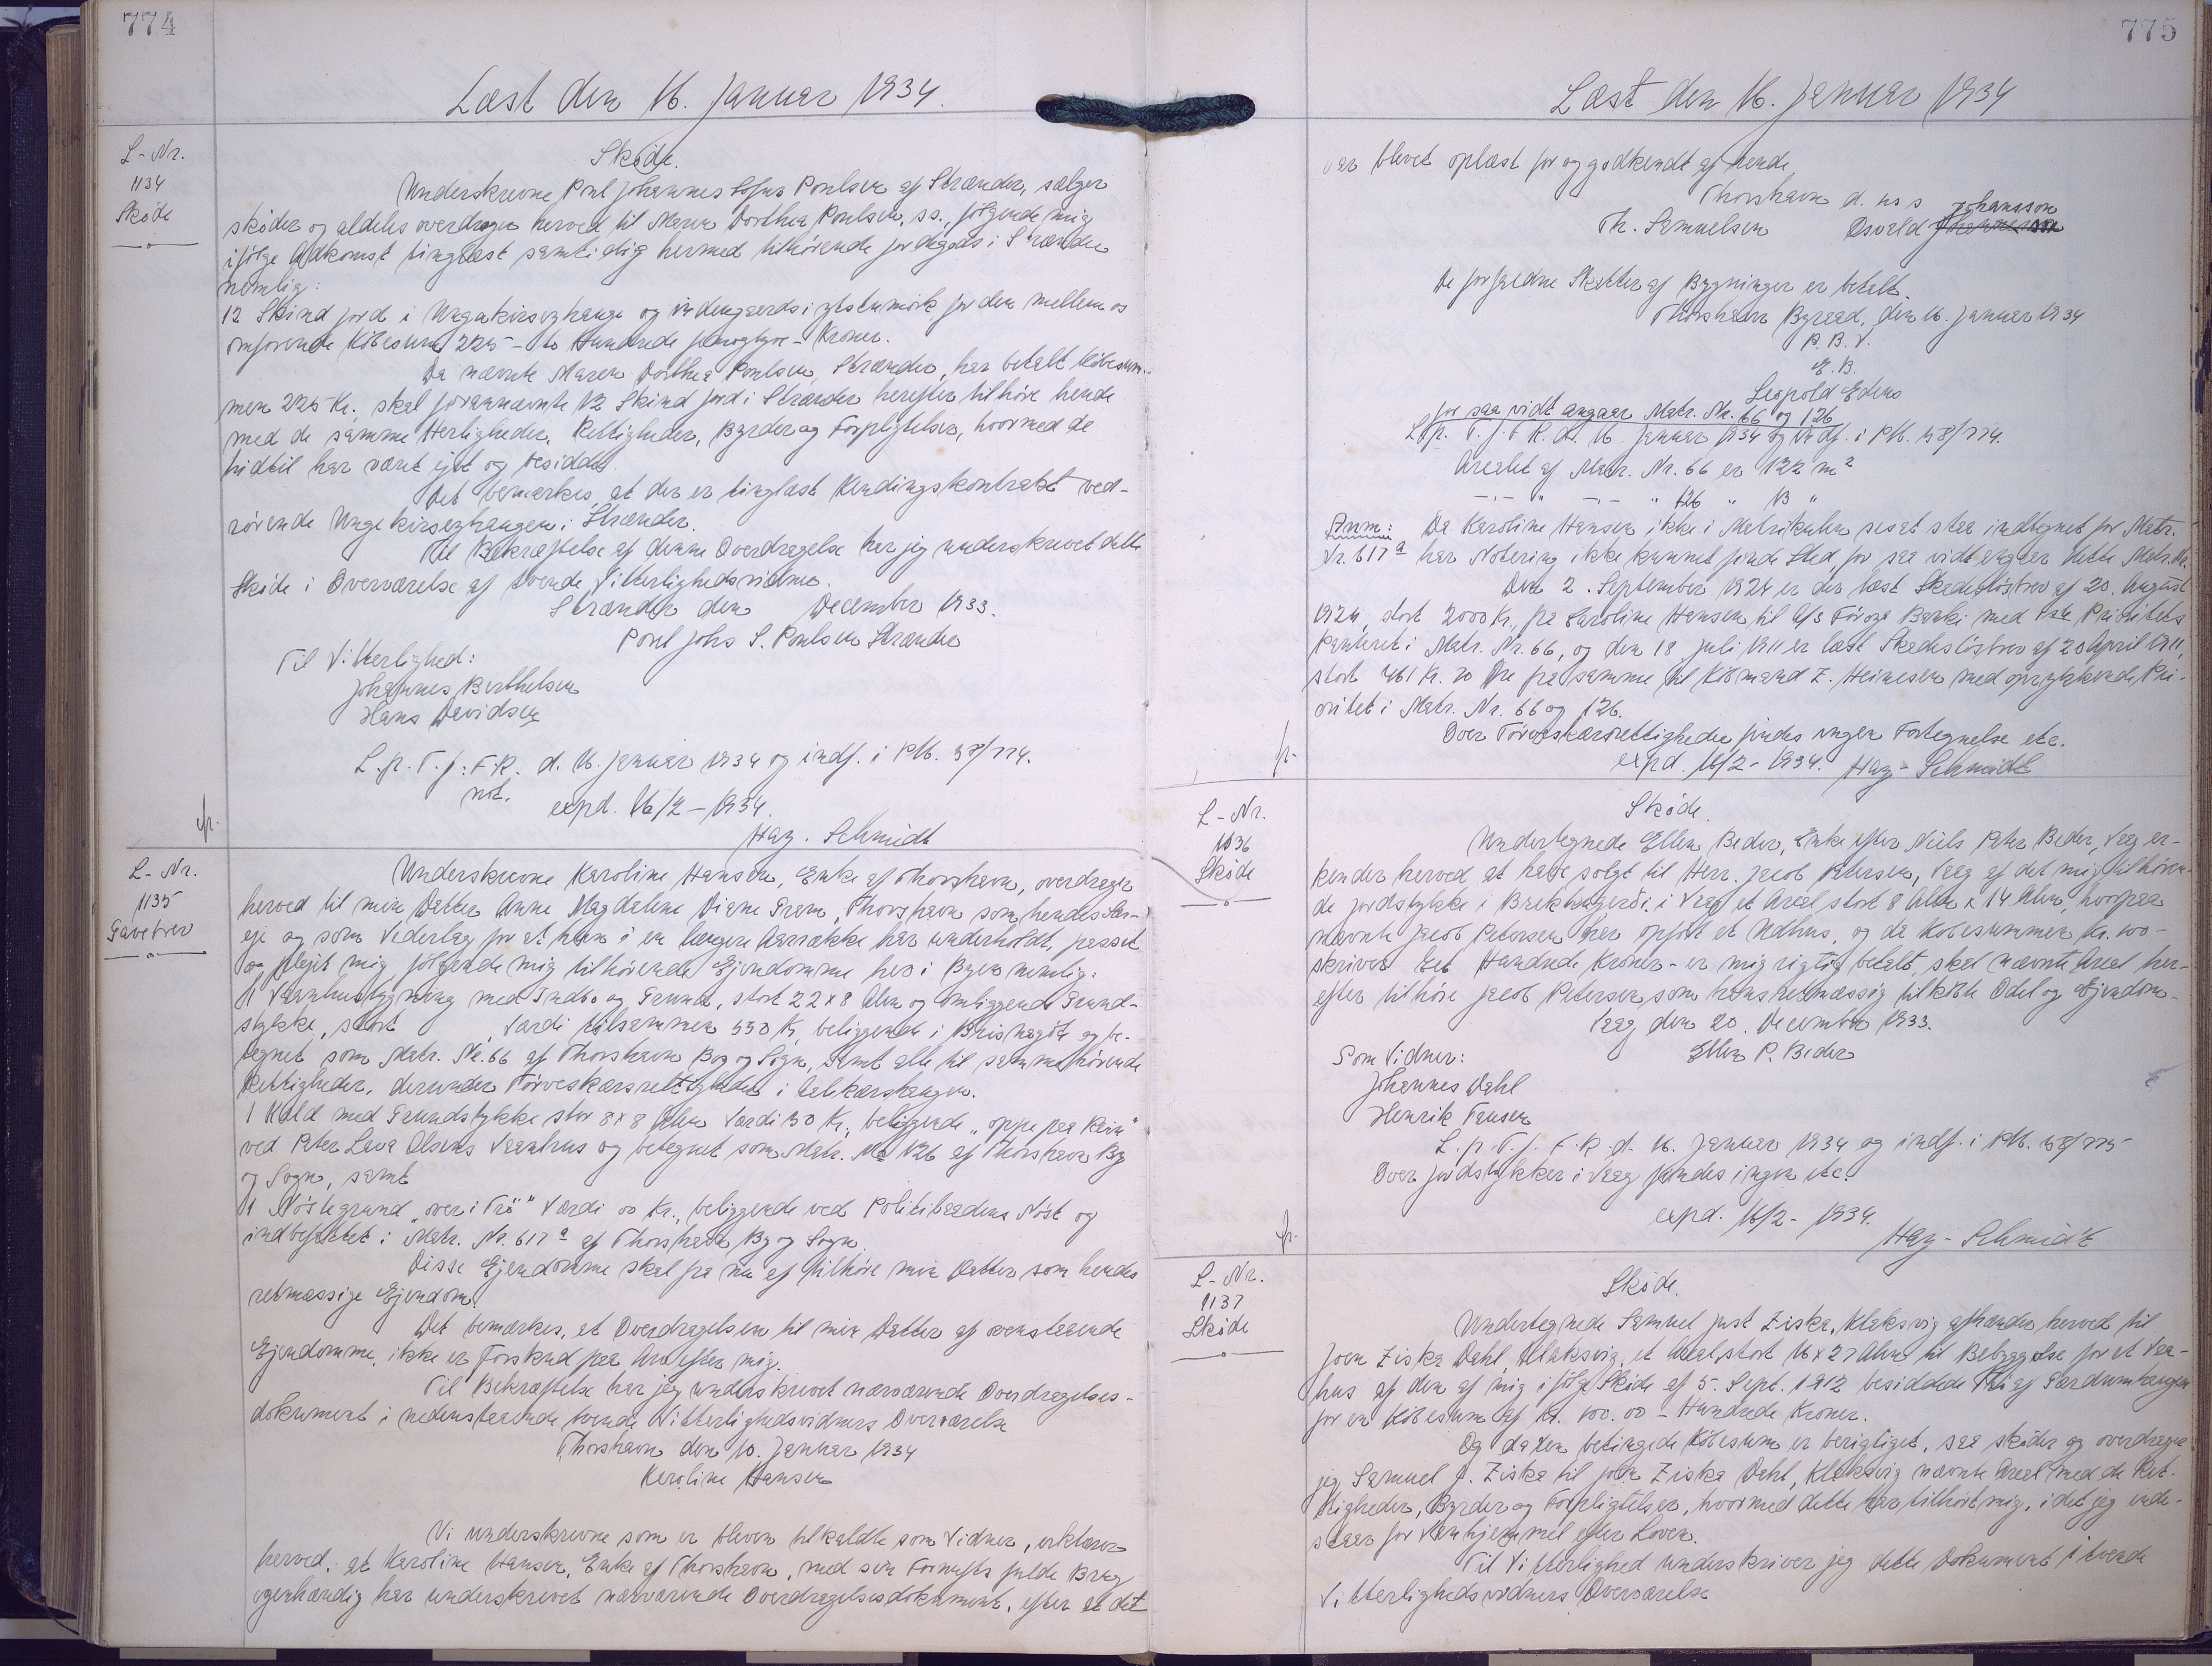 774
Læst den 16. Januar 1934.
L-Nr.
1134
Skøde
Skøde.
Underskrevne Poul Johannes Sofus Poulsen af Strænder, sælger
skøder og aldeles overdrager herved til Maren Dorthea Poulsen, ss., følgende mig
ifølge Adkomst tinglæst samtidig hermed tilhørende Jordegods i Strænder
nemlig:
12 Skind Jord i og indengærds i for den mellem os
omforenede Købesum 225 - to Hundrede femogtyve - Kroner.
Da nævnte Maren Dorthea Poulsen, Strænder, har betalt Købesum-
men 225 Kr. skal forannævnte 12 Skind Jord i Strænder herefter tilhøre hende
med de samme Herligheder, Rettigheder, Byrder og Forpligtelser, hvormed de
hidtil har været ejet og besiddet.
Det bemærkes, at der er tinglæst Kendingskontrakt ved-
rørende i Strænder.
Til Bekræftelse af denne Overdragelse har jeg underskrevet dette
Skøde i Overværelse af tvende Vitterlighedsvidner.
Strænder den December 1933.
Poul Johs S. Poulsen Strænder
Til Vitterlighed:
Johannes Berthelsen
Hans Davidsen
L. p. T. f. F. R. d. 16. Januar 1934 og indf. i PM. 58/774.
not.
expd. 16/2 - 1934.
Hag. Schmidt
L-Nr.
1135
Gavebrev
Underskrevne Karoline Hansen, Enke af Thorshavn, overdrager
herved til min Datter Anne Magdalene Diane Pram, Thorshavn som hendes Sær-
eje og som Vederlag for at hun i en længere Aarrække har underholdt, passet
og plejet mig, følgende mig tilhørende Ejendomme her i Byen nemlig:
1 Vaanhusbygning med Indbo og Grund, stort 22 x 8 Alen og omliggende Grund-
stykke, stort , Værdi tilsammen 550 Kr, beliggende i og be-
tegnet som Matr. Nr. 66 af Thorshavn By og Sogn, samt alle til samme hørende
Rettigheder, derunder Tørveskærsrettigheder i
1 Hald med Grundstykke stor 8 x 8 Alen Værdi 50 Kr., beliggende "oppe paa Rein"
ved Peter Lava Olsens Vaanhus og betegnet som Matr. No 126 af Thorshavn By
og Sogn, samt
1 Nöstegrund "over i Trö" Værdi 00 Kr., beliggende ved Politibaadens Nöst og
indbefattet i Matr. Nr. 617 a af Thorshavn By og Sogn
Disse Ejendomme skal fra nu af tilhöre min Datter som hendes
retmæssige Ejendom.
Det bemærkes, at Overdragelsen til min Datter af ovenstaaende
Ejendomme, ikke er Forskud paa Arv efter mig.
Til Bekræftelse har jeg underskrevet nærværende Overdragelses-
dokument i nedenstaaende tvende Vitterlighedsvidners Overværelse
Thorshavn den 10. Januar 1934
Karoline Hansen
Vi underskrevne som er bleven tilkaldte som Vidner, erklærer
herved, at Karoline Hansen, Enke af Thorshavn, med sin Fornufts fulde Brug
egenhændig har underskrevet nærværende Overdragelsesdokument, efter at det
775
Læst den 16. Januar 1934
var blevet oplæst for og godkendt af hende
Thorshavn d. u. s
Johansson
Th. Samuelsen Osvald
De forfaldne Skatter af Bygninger er betalt.
Thorshavn Byraad, den 16. Januar 1934
P. B. V.
E. B.
Leopold Edens
for saa vidt angaar Matr. Nr. 66 og 126
L. p. T. f. F. R. d. 16. Januar 1934 og indf. i PM. 58/774.
Arealet af Matr. Nr. 66 er 122 m2
-"- " -"- " 126 " 13 "
Anm: Da Karoline Hansen ikke i Matrikulen sesat staa indtegnet for Matr.
Nr. 617 a har Notering ikke kunnet finde Sted, for saa vidt angaar dette Matr. Nr.
Den 2. September 1924 er der læst Skadeslösbrev af 20. August
1924, stort 2000 Kr., fra Karoline Hansen til A/S Föroya Banki med 1ste Prioritets
Panteret i Matr. Nr. 66, og den 18 Juli 1911 er læst Skadeslösbrev af 20 April 1911,
stort 461 Kr. 20 Øre fra samme til Købmand Z. Heinesen med oprykkende Pri-
oritet i Matr. Nr. 66 og 126.
Over Törveskærsrettigheder findes ingen Fortegnelse etc.
expd. 16/2 - 1934. Hag - Schmidt
L-Nr.
1136
Skøde
Skøde.
Undertegnede Ellen Beder, Enke efter Niels Peter Beder, Vaag er-
kender herved at have solgt til Herr. Jacob Petersen, Vaag af det mig tilhøren-
de Jordstykke i i Vaag et Areal stort 8 Alen x 14 Alen, hvorpaa
nævnte Jacob Petersen har opført et Nedhus, og da Købesummen Kr. 100 -
skriver Eet Hundrede Kroner - er mig rigtig betalt, skal nævnte Areal her-
efter tilhöre Jacob Petersen som hans lovmæssig tilkøbte Odel og Ejendom-
Vaag den 20. December 1933.
Ellen P. Beder
Som Vidner:
Johannes Dahl
Henrik Fausen
L. p. T. f. F. R. d. 16. Januar 1934 og indf. i PM. 58/775
Over Jordstykker i Vaag findes ingen etc.
expd. 16/2 - 1934.
Hag - Schmidt
L-Nr.
1137
Skøde
Skøde.
Undertegnede Samuel Just Ziska, Klaksvig afhænder herved til
Joen Ziska Dahl, Klaksvig, et Areal, stort 16 x 27 Alen til Bebyggelse for et Vaa-
hus af den af mig ifølge Skøde af 5. Sept. 1912 besiddede
for en Købesum af Kr. 100.00 - Hundrede Kroner.
Og da den betingede Købesum er berigtiget, saa skøder og overdrager
jeg, Samuel J. Ziska til Joen Ziska Dahl, Klaksvig nævnte Areal med de Ret-
tigheder, Byrder og Forpligtelser, hvormed dette har tilhørt mig, idet jeg inde-
staar for Vanhjemmel efter Loven.
Til Vitterlighed underskriver jeg dette Dokument i tvende
Vitterlighedsvidners Overværelse